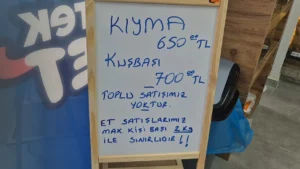 KIYMA
650 00 TL
KUŞBAŞI
700 00 TL
TOPLU SATIŞIMIZ
YOKTUR.
ET SATIŞLARIMIZ
MAX KİŞİ BAŞI 2 KG
İLE SINIRLIDIR !!
ET